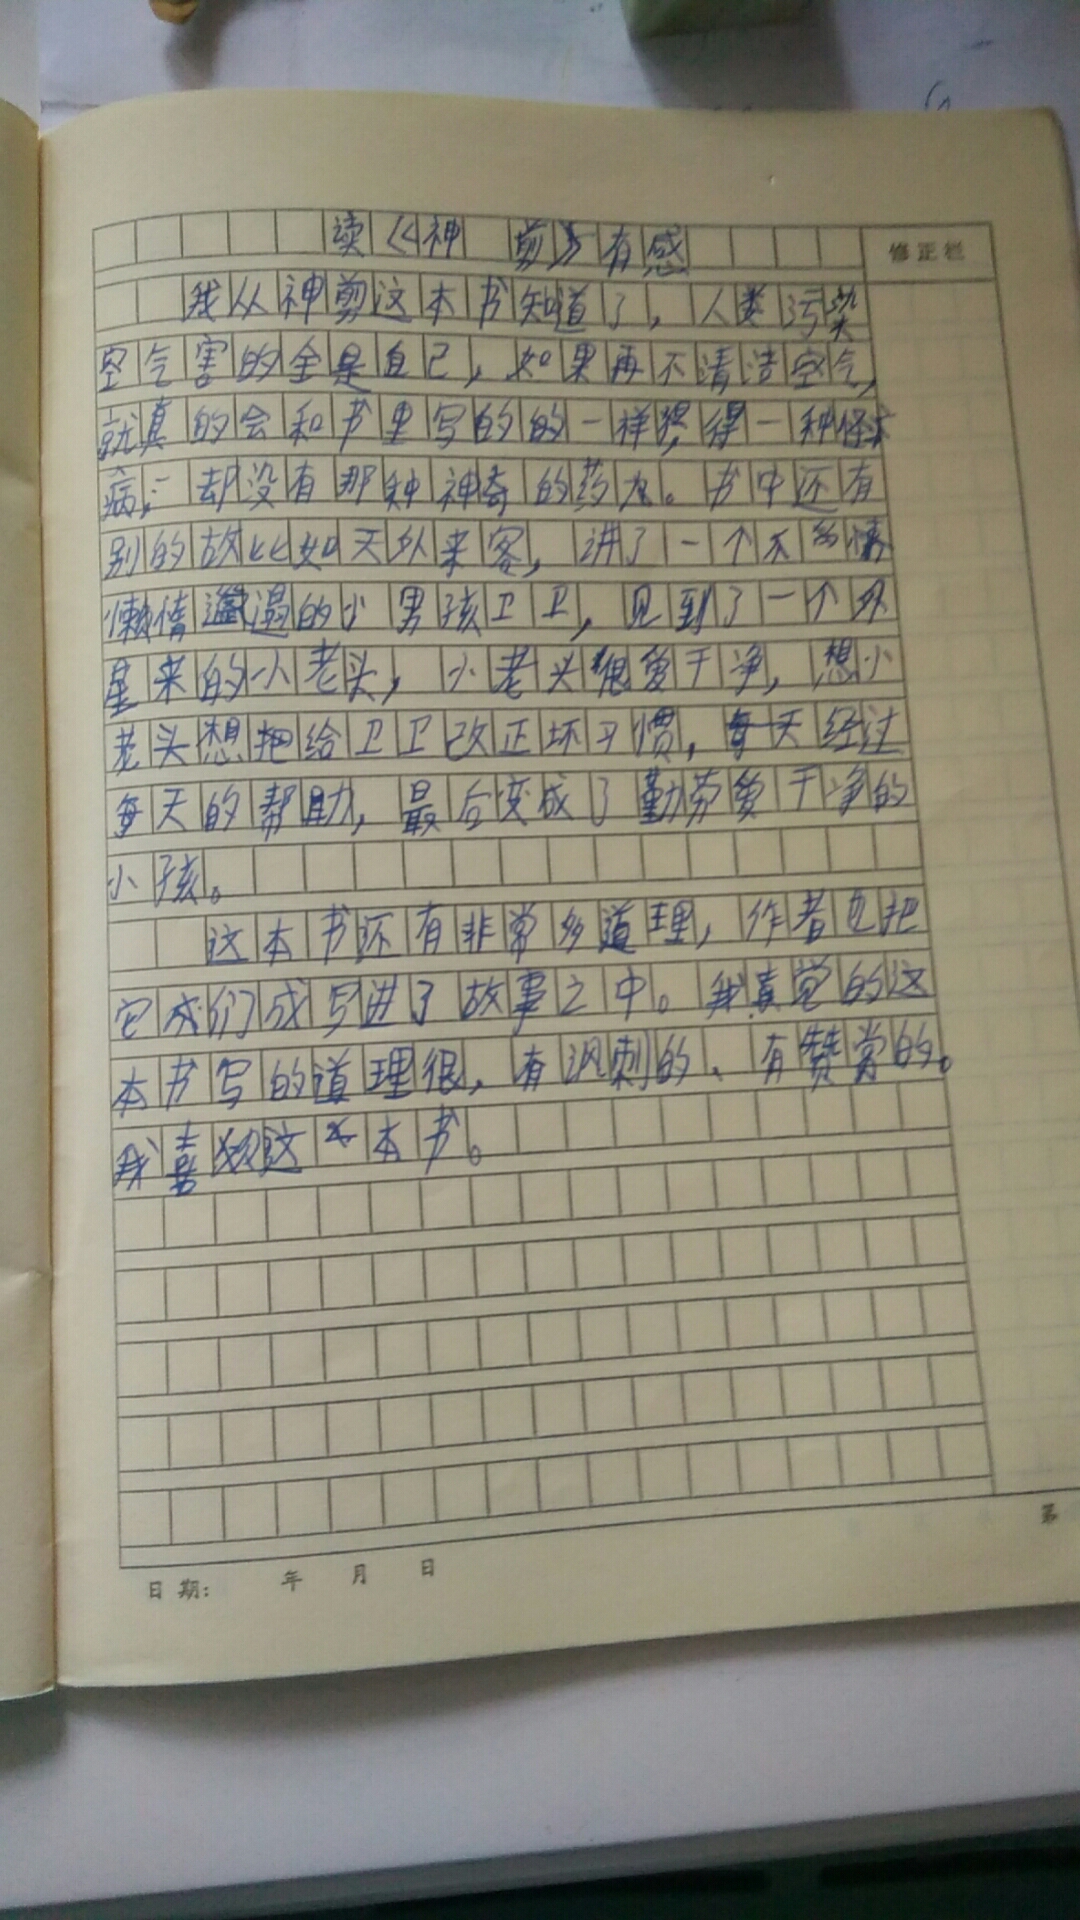 读《神剪》有感
修正栏
我从神剪这本书知道了，人类污染
空气害的全是自己，如果再不清洁空气，
就真的会和书里写的的一样，得一种怪
病，却没有那种神奇的药丸。书中还有
别的故比如天外来客，讲了一个
懒惰邋遢的小男孩卫卫，见到了一个外
星来的小老头，小老头很爱干净，想小
老头想把给卫卫改正坏习惯，每天经过
每天的帮助，最后变成了勤劳爱干净的
小孩。
这本书还有非常多道理，作者也把
它成们成写进了故事之中。我真觉的这
本书写的道理很，有讽刺的、有赞赏的。
我喜欢这本书。
日期： 年 月 日
第